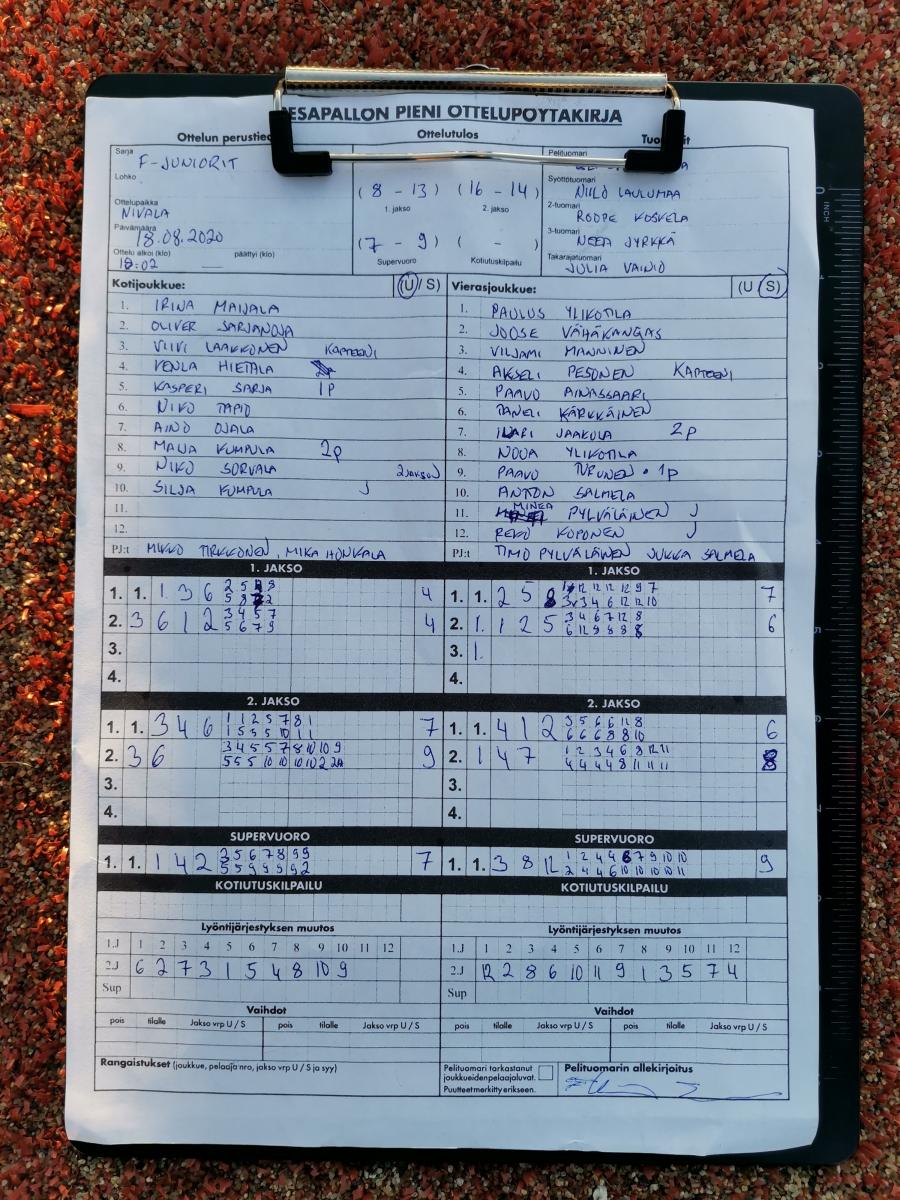 ESAPALLON PIENI OTTELUPÖYTÄKIRJA
Ottelun perustied
Ottelutulos
Sarja F-JUNIORIT
Lohko
Ottelupaikka NIVALA
Päivämäärä 18.08.2020
Ottelu alkoi (klo) päättyi (klo)
18:02
(8 - 13) (16 - 14)
1. jakso 2. jakso
(7 - 9) ( - )
Supervuoro Kotiutuskilpailu
Pelituomari
Syöttötuomari NIILO LAULUMAA
2-tuomari ROOPE KOSKELA
3-tuomari NEEA JYRKKÄ
Takarajatuomari JULIA VAINIO
Kotijoukkue: (U / S)
1. IRINA MAIJALA
2. OLIVER SARJANOJA
3. VIIVI LAAKKONEN KAPTEENI
4. VENLA HIETALA
5. KASPERI SARJA 1P
6. NIKO TAPIO
7. AINO OJALA
8. MAIJA KUMPULA 2P
9. NIKO SORVALA 2JAKSO
10. SILJA KUMPULA J
11.
12.
PJ:t MIKKO TIRKKONEN, MIKA HONKALA
Vierasjoukkue: (U S)
1. PAULUS YLIKOTILA
2. JOOSE VÄHÄKANGAS
3. VILJAMI MANNINEN
4. AKSELI PESONEN KAPTEENI
5. PAAVO AINASSAARI
6. TANELI KÄRKKÄINEN
7. ILARI JAAKOLA 2P
8. NOOA YLIKOTILA
9. PAAVO TURUNEN 1P
10. ANTON SALMELA
11. MINEA PYLVÄLÄINEN J
12. REKO KOPONEN J
PJ:t TIMO PYLVÄLÄINEN JUKKA SALMELA
1. JAKSO
1. 1. 1 3 6 4
2. 3 6 1 2 3 4 5 7 4
5 6 7 9
3.
4.
1. JAKSO
1. 1. 2 5 8 7
2. 1. 1 2 5 3 4 6 7 12 8 6
6 12 9 8 8 8
3. 1.
4.
2. JAKSO
1. 1. 3 4 6 1 1 2 5 7 8 1 7
1 5 5 5 10 11
2. 3 6 3 4 5 5 7 8 10 10 9 9
5 5 5 10 10 10 10 2 2A
3.
4.
2. JAKSO
1. 1. 4 1 2 3 5 6 6 12 8 6
6 6 6 8 8 10
2. 1 4 7 1 2 3 4 6 8 12 11 8
4 4 4 4 8 11 11 11
3.
4.
SUPERVUORO
1. 1. 1 4 2 3 5 6 7 8 9 9 7
5 5 9 9 9 9 2
SUPERVUORO
1. 1. 3 8 12 1 2 4 4 6 7 9 10 10 9
2 4 4 6 10 10 10 10 11
KOTIUTUSKILPAILU
KOTIUTUSKILPAILU
Lyöntijärjestyksen muutos
1.J 1 2 3 4 5 6 7 8 9 10 11 12
2.J 6 2 7 3 1 5 4 8 10 9
Sup
Lyöntijärjestyksen muutos
1.J 1 2 3 4 5 6 7 8 9 10 11 12
2.J 12 2 8 6 10 11 9 1 3 5 7 4
Sup
Vaihdot
pois tilalle Jakso vrp U / S pois tilalle Jakso vrp U / S
Vaihdot
pois tilalle Jakso vrp U / S pois tilalle Jakso vrp U / S
Rangaistukset (joukkue, pelaaja nro, jakso vrp U / S ja syy)
Pelituomari tarkastanut
joukkueidenpelaajaluvat.
Puutteetmerkitty erikseen.
Pelituomarin allekirjoitus
INCH